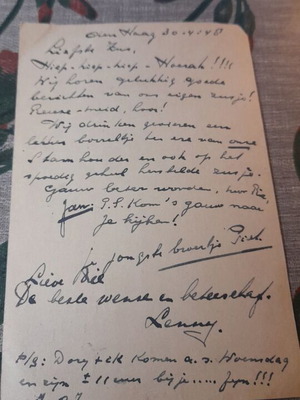 Den Haag 30-4-'48
Liefste Zus,
Hiep-hiep-hiep-Hoerah!!!!
Wij horen gelukkig goede
berichten van ons eigen zusje!
Reuze-meid, hoor!
Wij drinken een
lekker borreltje ter ere van onze
Stamhouder en ook op het
spoedig geheel herstelde zusje.
Gauw beter worden, hoor
Jan. P.S. Kom's gauw naar
je kijken!
je jongste broertje Piet.
Lieve
De beste wensen en beterschap.
Lenny.
P/S: Dory + ek Komen a.s. Woensdag
en zijn ± 11 uur bij je..... Fijn!!!